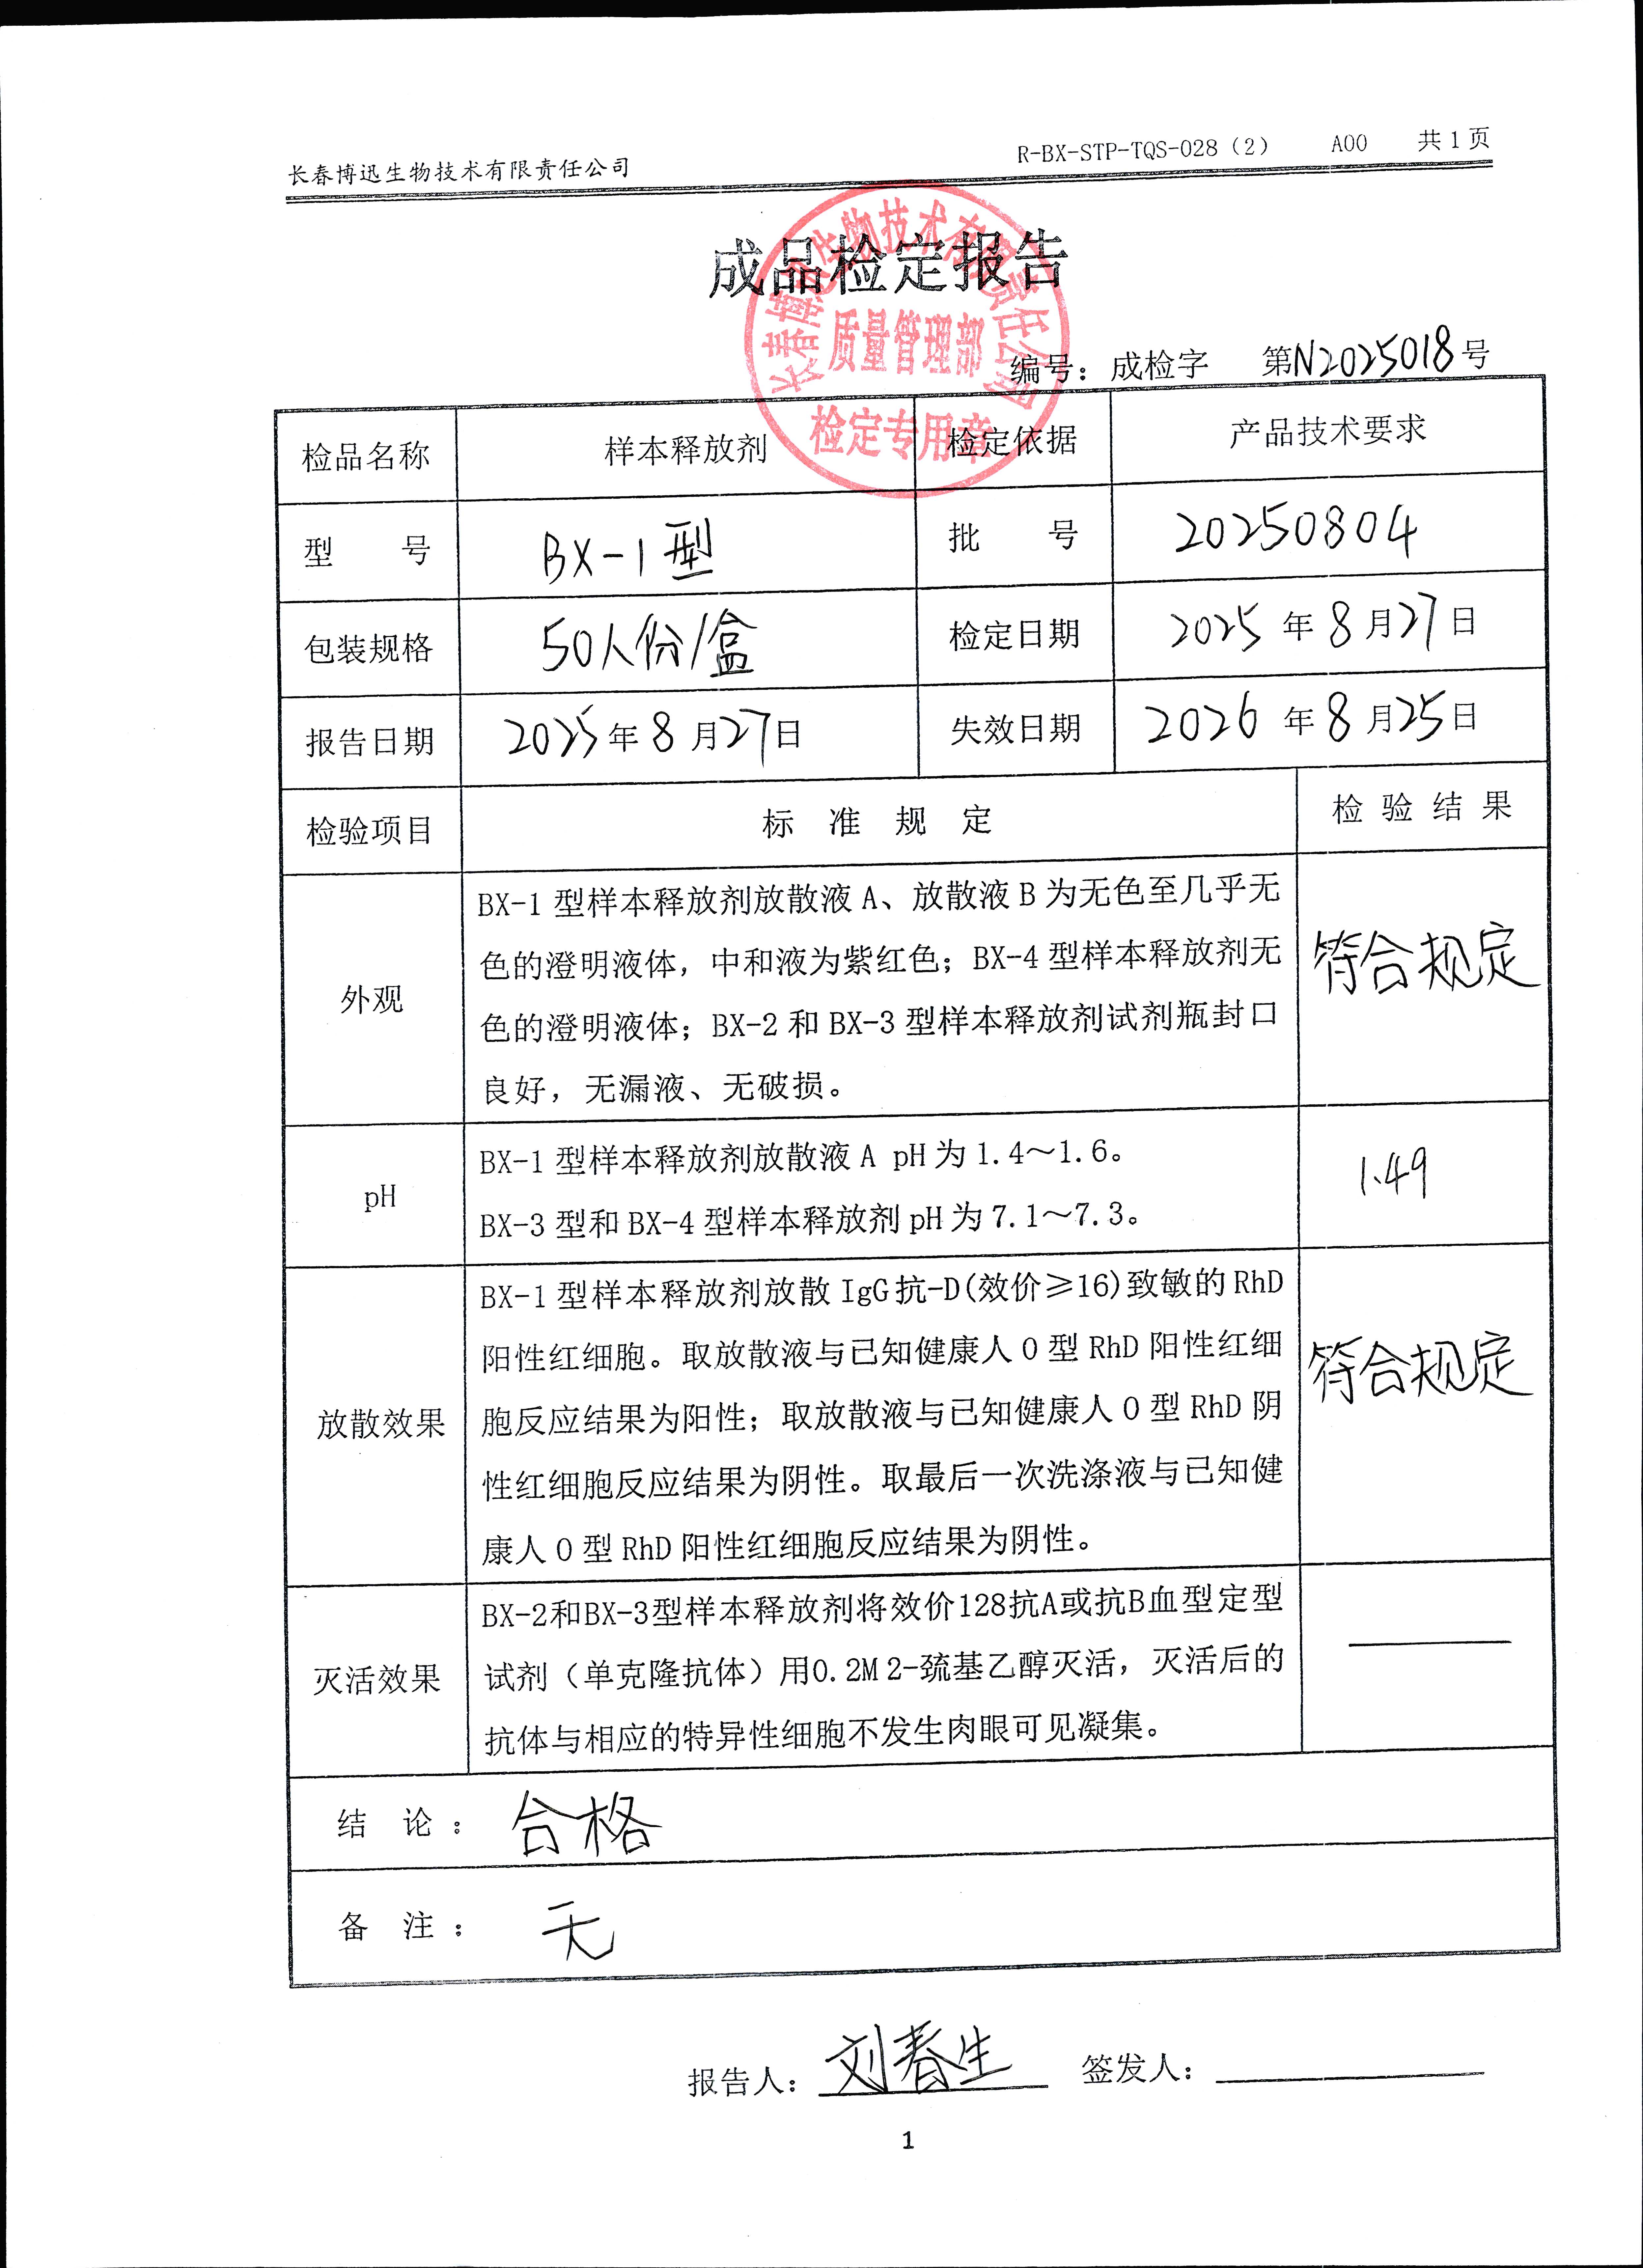 长春博迅生物技术有限责任公司 R-BX-STP-TQS-028（2） A00 共1页
成品检定报告
长春博迅生物技术有限责任公司
质量管理部
检定专用章
编号：成检字 第N2025018号
检品名称 样本释放剂 检定依据 产品技术要求
型 号 BX-1型 批 号 20250804
包装规格 50人份/盒 检定日期 2025年8月27日
报告日期 2025年8月27日 失效日期 2026年8月25日
检验项目 标准规定 检验结果
BX-1型样本释放剂放散液A、放散液B为无色至几乎无
色的澄明液体，中和液为紫红色；BX-4型样本释放剂无
外观 符合规定
色的澄明液体；BX-2和BX-3型样本释放剂试剂瓶封口
良好，无漏液、无破损。
BX-1型样本释放剂放散液A pH为1.4～1.6。
pH 1.49
BX-3型和BX-4型样本释放剂pH为7.1～7.3。
BX-1型样本释放剂放散IgG抗-D(效价≥16)致敏的RhD
阳性红细胞。取放散液与已知健康人O型RhD阳性红细
放散效果 胞反应结果为阳性；取放散液与已知健康人O型RhD阴 符合规定
性红细胞反应结果为阴性。取最后一次洗涤液与已知健
康人O型RhD阳性红细胞反应结果为阴性。
BX-2和BX-3型样本释放剂将效价128抗A或抗B血型定型
灭活效果 试剂（单克隆抗体）用0.2M 2-巯基乙醇灭活，灭活后的
抗体与相应的特异性细胞不发生肉眼可见凝集。
结 论： 合格
备 注： 无
报告人：刘春生 签发人：
1